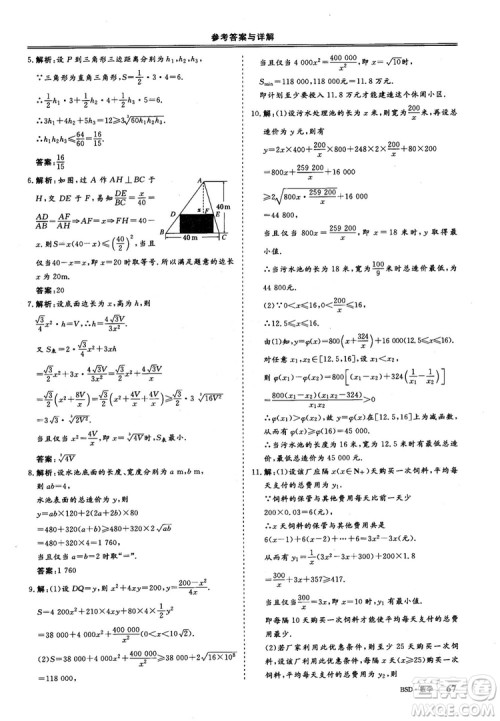 参考答案与详解
5.解析：设 P 到三角形三边距离分别为 h₁，h₂，h₃，
∵三角形为直角三角形，S=1/2·3·4=6.
∴1/2·h₁·5+1/2·h₂·4+1/2·h₃·3=6.
∴3h₃+4h₂+5h₁=12≥3∛(60h₁h₂h₃)
∴h₁h₂h₃≤64/60=16/15.
答案：16/15
6.解析：如图，过 A 作 AH⊥BC 交于 H，交 DE 于 F，易知 DE/BC=x/40=AD/AB
AD/AB=AF/AH⇒AF=x⇒FH=40-x.
则 S=x(40-x)≤(40/2)²，当且仅当40-x=x，即 x=20 时取等号.所以满足题意的边长 x 为 20m.
A
D
E
x
B
F
H
C
40 m
40 m
答案：20
7.解析：设底面边长为 x，高为 h，则
√3/4x²·h=V，∴h=4√3V/3x²，
又 S表=2·√3/4x²+3xh
=√3/2x²+3x·4√3V/3x²=√3/2(x²+8V/x)
=√3/2(x²+4V/x+4V/x)≥√3/2×3·∛(16V²)
=3√3·∛(2V²).
当且仅当 x²=4V/x，即 x=∛(4V)时，S表最小.
答案：∛(4V)
8.解析：设水池底面的长、宽度分别为 a m，b m，
水池的总造价为 y，
则 ab=4，
y=120ab+2×80(a+b)
=480+160(a+b)
≥480+320√ab=1 760(元)，
当且仅当 a=b=2 时取“=”.
答案：1 760
9.解：(1)设 DQ=y，则 x²+4xy=200，y=(200-x²)/4x.
S=4 200x²+210×4xy+80×4×1/2y²
=38 000+4 000x²+400 000/x²(0<x<10√2).
(2)S=38 000+4 000x²+400 000/x²≥38 000+2√(16×10⁸)=118 000，
当且仅当 4 000x²=400 000/x²，即 x=√10时，
Smin=118 000(元)=11.8 万元，
即计划至少要投入 11.8 万元才能建造这个休闲小区.
10.解：(1)设污水处理池的长为 x 米，则宽为200/x米，总造价
y=2x×400+200/x×2×400+200/x×248×2+16 000
=800x+259 200/x+16 000
≥2√(800x·259 200/x)+16 000
=44 800，
当且仅当 800x=259 200/x，即 x=18 米时，y 取得最小值.
∴当污水池的长为 18 米，宽为100/9米时总造价最低，为 44 800 元.
(2)∵0<x≤16，0<200/x≤16，
∴12.5≤x≤16，
由(1)知，y=φ(x)=800(x+324/x)+16 000，
对任意 x₁，x₂∈[12.5，16]，且 x₁<x₂，
则 φ(x₁)-φ(x₂)=800[(x₁-x₂)+324(1/x₁-1/x₂)]
=800(x₁-x₂)(x₁x₂-324)/x₁x₂>0，
∴φ(x₁)>φ(x₂)，
故 y=φ(x)在[12.5，16]上为减函数，
从而 φ(x)≥φ(16)=45 000.
∴当污水池的长为 16 米，宽为 12.5 米时，有最低总造价，最低总造价为 45 000 元.
11.解：(1)设该厂应隔 x(x∈N+)天购买一次饲料，平均每天支付的总费用为 y₁.
∵饲料的保管与其他费用每天比前一天少
200×0.03=6(元)，
∴x 天饲料的保管与其他费用共有
6(x-1)+6(x-2)+…+6=(3x²-3x)(元).
从而有 y₁=1/x(3x²-3x+300)+200×1.8
=300/x+3x+357≥417.
当且仅当300/x=3x，即 x=10 时，y₁有最小值，
即每隔 10 天购买一次饲料才能使平均每天支付的总费用最少.
(2)若厂家利用此优惠条件，则至少 25 天购买一次饲料，设该厂利用此优惠条件，每隔 x 天(x≥25)购买一次饲料，平均每天支付的总费用为 y₂，则
BSD·数学 67